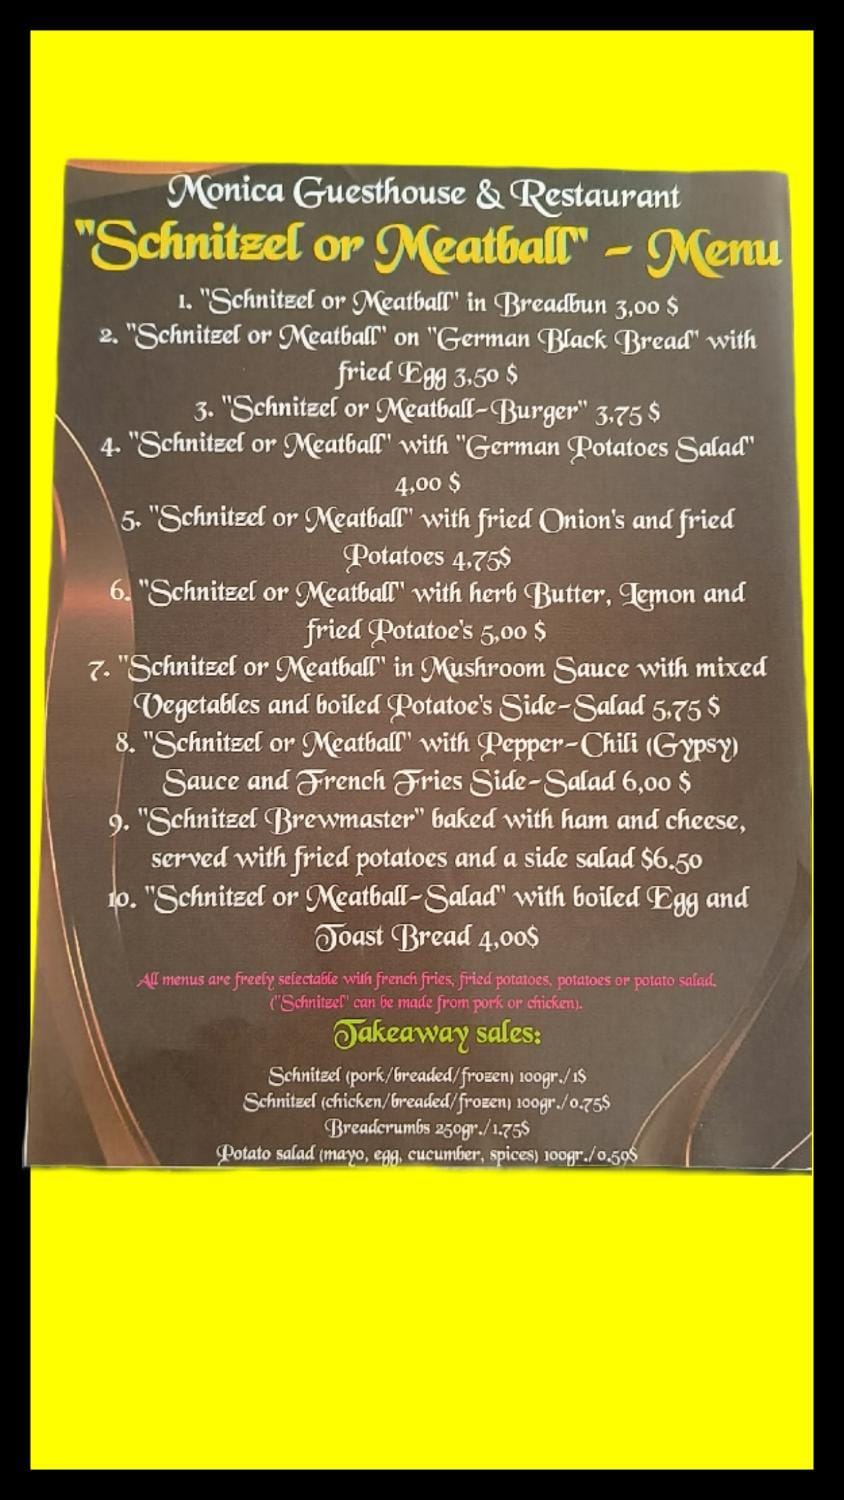 Monica Guesthouse & Restaurant
"Schnitzel or Meatball" - Menu
1. "Schnitzel or Meatball" in Breadbun 3,00 $
2. "Schnitzel or Meatball" on "German Black Bread" with
fried Egg 3,50 $
3. "Schnitzel or Meatball-Burger" 3,75 $
4. "Schnitzel or Meatball" with "German Potatoes Salad"
4,00 $
5. "Schnitzel or Meatball" with fried Onion's and fried
Potatoes 4,75$
6. "Schnitzel or Meatball" with herb Butter, Lemon and
fried Potatoe's 5,00 $
7. "Schnitzel or Meatball" in Mushroom Sauce with mixed
Vegetables and boiled Potatoe's Side-Salad 5,75 $
8. "Schnitzel or Meatball" with Pepper-Chili (Gypsy)
Sauce and French Fries Side-Salad 6,00 $
9. "Schnitzel Brewmaster" baked with ham and cheese,
served with fried potatoes and a side salad $6.50
10. "Schnitzel or Meatball-Salad" with boiled Egg and
Toast Bread 4,00$
All menus are freely selectable with french fries, fried potatoes, potatoes or potato salad.
("Schnitzel" can be made from pork or chicken).
Takeaway sales:
Schnitzel (pork/breaded/frozen) 100gr./1$
Schnitzel (chicken/breaded/frozen) 100gr./0.75$
Breadcrumbs 250gr./1.75$
Potato salad (mayo, egg, cucumber, spices) 100gr./0.50$